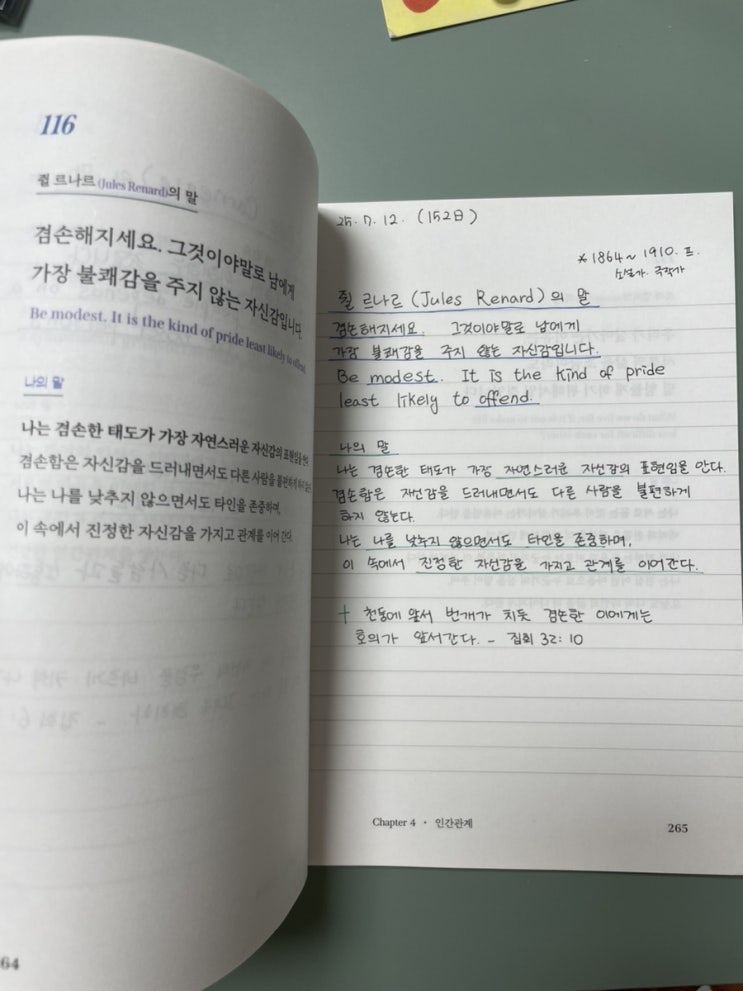 116
쥘 르나르(Jules Renard)의 말
겸손해지세요. 그것이야말로 남에게
가장 불쾌감을 주지 않는 자신감입니다.
Be modest. It is the kind of pride least likely to offend.
나의 말
나는 겸손한 태도가 가장 자연스러운 자신감의 표현임을 안다.
겸손함은 자신감을 드러내면서도 다른 사람을 불편하게 하지 않는다.
나는 나를 낮추지 않으면서도 타인을 존중하며,
이 속에서 진정한 자신감을 가지고 관계를 이어 간다.
64
25. 7. 12. (152日)
* 1864 ~ 1910. 프.
소설가. 극작가
쥘 르나르 (Jules Renard)의 말
겸손해지세요. 그것이야말로 남에게
가장 불쾌감을 주지 않는 자신감입니다.
Be modest. It is the kind of pride
least likely to offend.
나의 말
나는 겸손한 태도가 가장 자연스러운 자신감의 표현임을 안다.
겸손함은 자신감을 드러내면서도 다른 사람을 불편하게
하지 않는다.
나는 나를 낮추지 않으면서도 타인을 존중하며,
이 속에서 진정한 자신감을 가지고 관계를 이어간다.
† 천둥에 앞서 번개가 치듯 겸손한 이에게는
호의가 앞서간다. - 집회 32:10
Chapter 4 · 인간관계
265